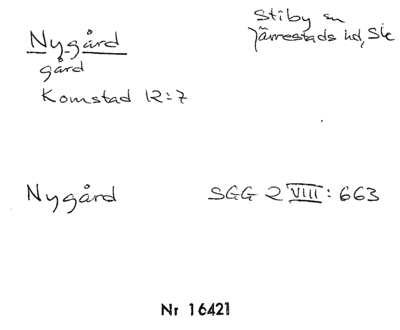 Nygård
gård
Komstad 12:7
Stiby sn
Järrestads hd, Sk
Nygård
SGG 2 VIII: 663
Nr 16421